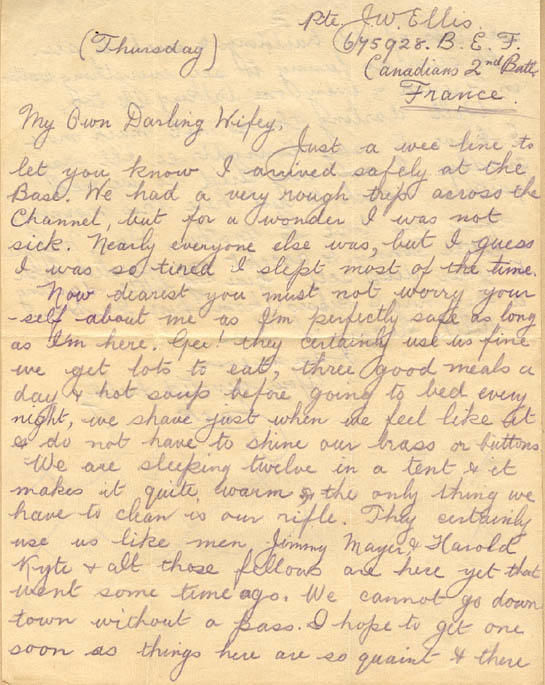 Pte. J.W. Ellis.
(Thursday)
675928. B. E. F.
Canadians 2nd Battn
France.
My Own Darling Wifey,
Just a wee line to
let you know I arrived safely at the
Base. We had a very rough trip across the
Channel, but for a wonder I was not
sick. Nearly everyone else was, but I guess
I was so tired I slept most of the time.
Now dearest you must not worry your
-self about me as I'm perfectly safe as long
as I'm here. Gee! they certainly use us fine
we get lots to eat, three good meals a
day & hot soup before going to bed every
night, we shave just when we feel like it
& do not have to shine our brass or buttons
We are sleeping twelve in a tent & it
makes it quite warm & the only thing we
have to clean is our rifle. They certainly
use us like men. Jimmy Mayer & Harold
Kyte & all those fellows are here yet that
went some time ago. We cannot go down
town without a pass. I hope to get one
soon as things here are so quaint & there